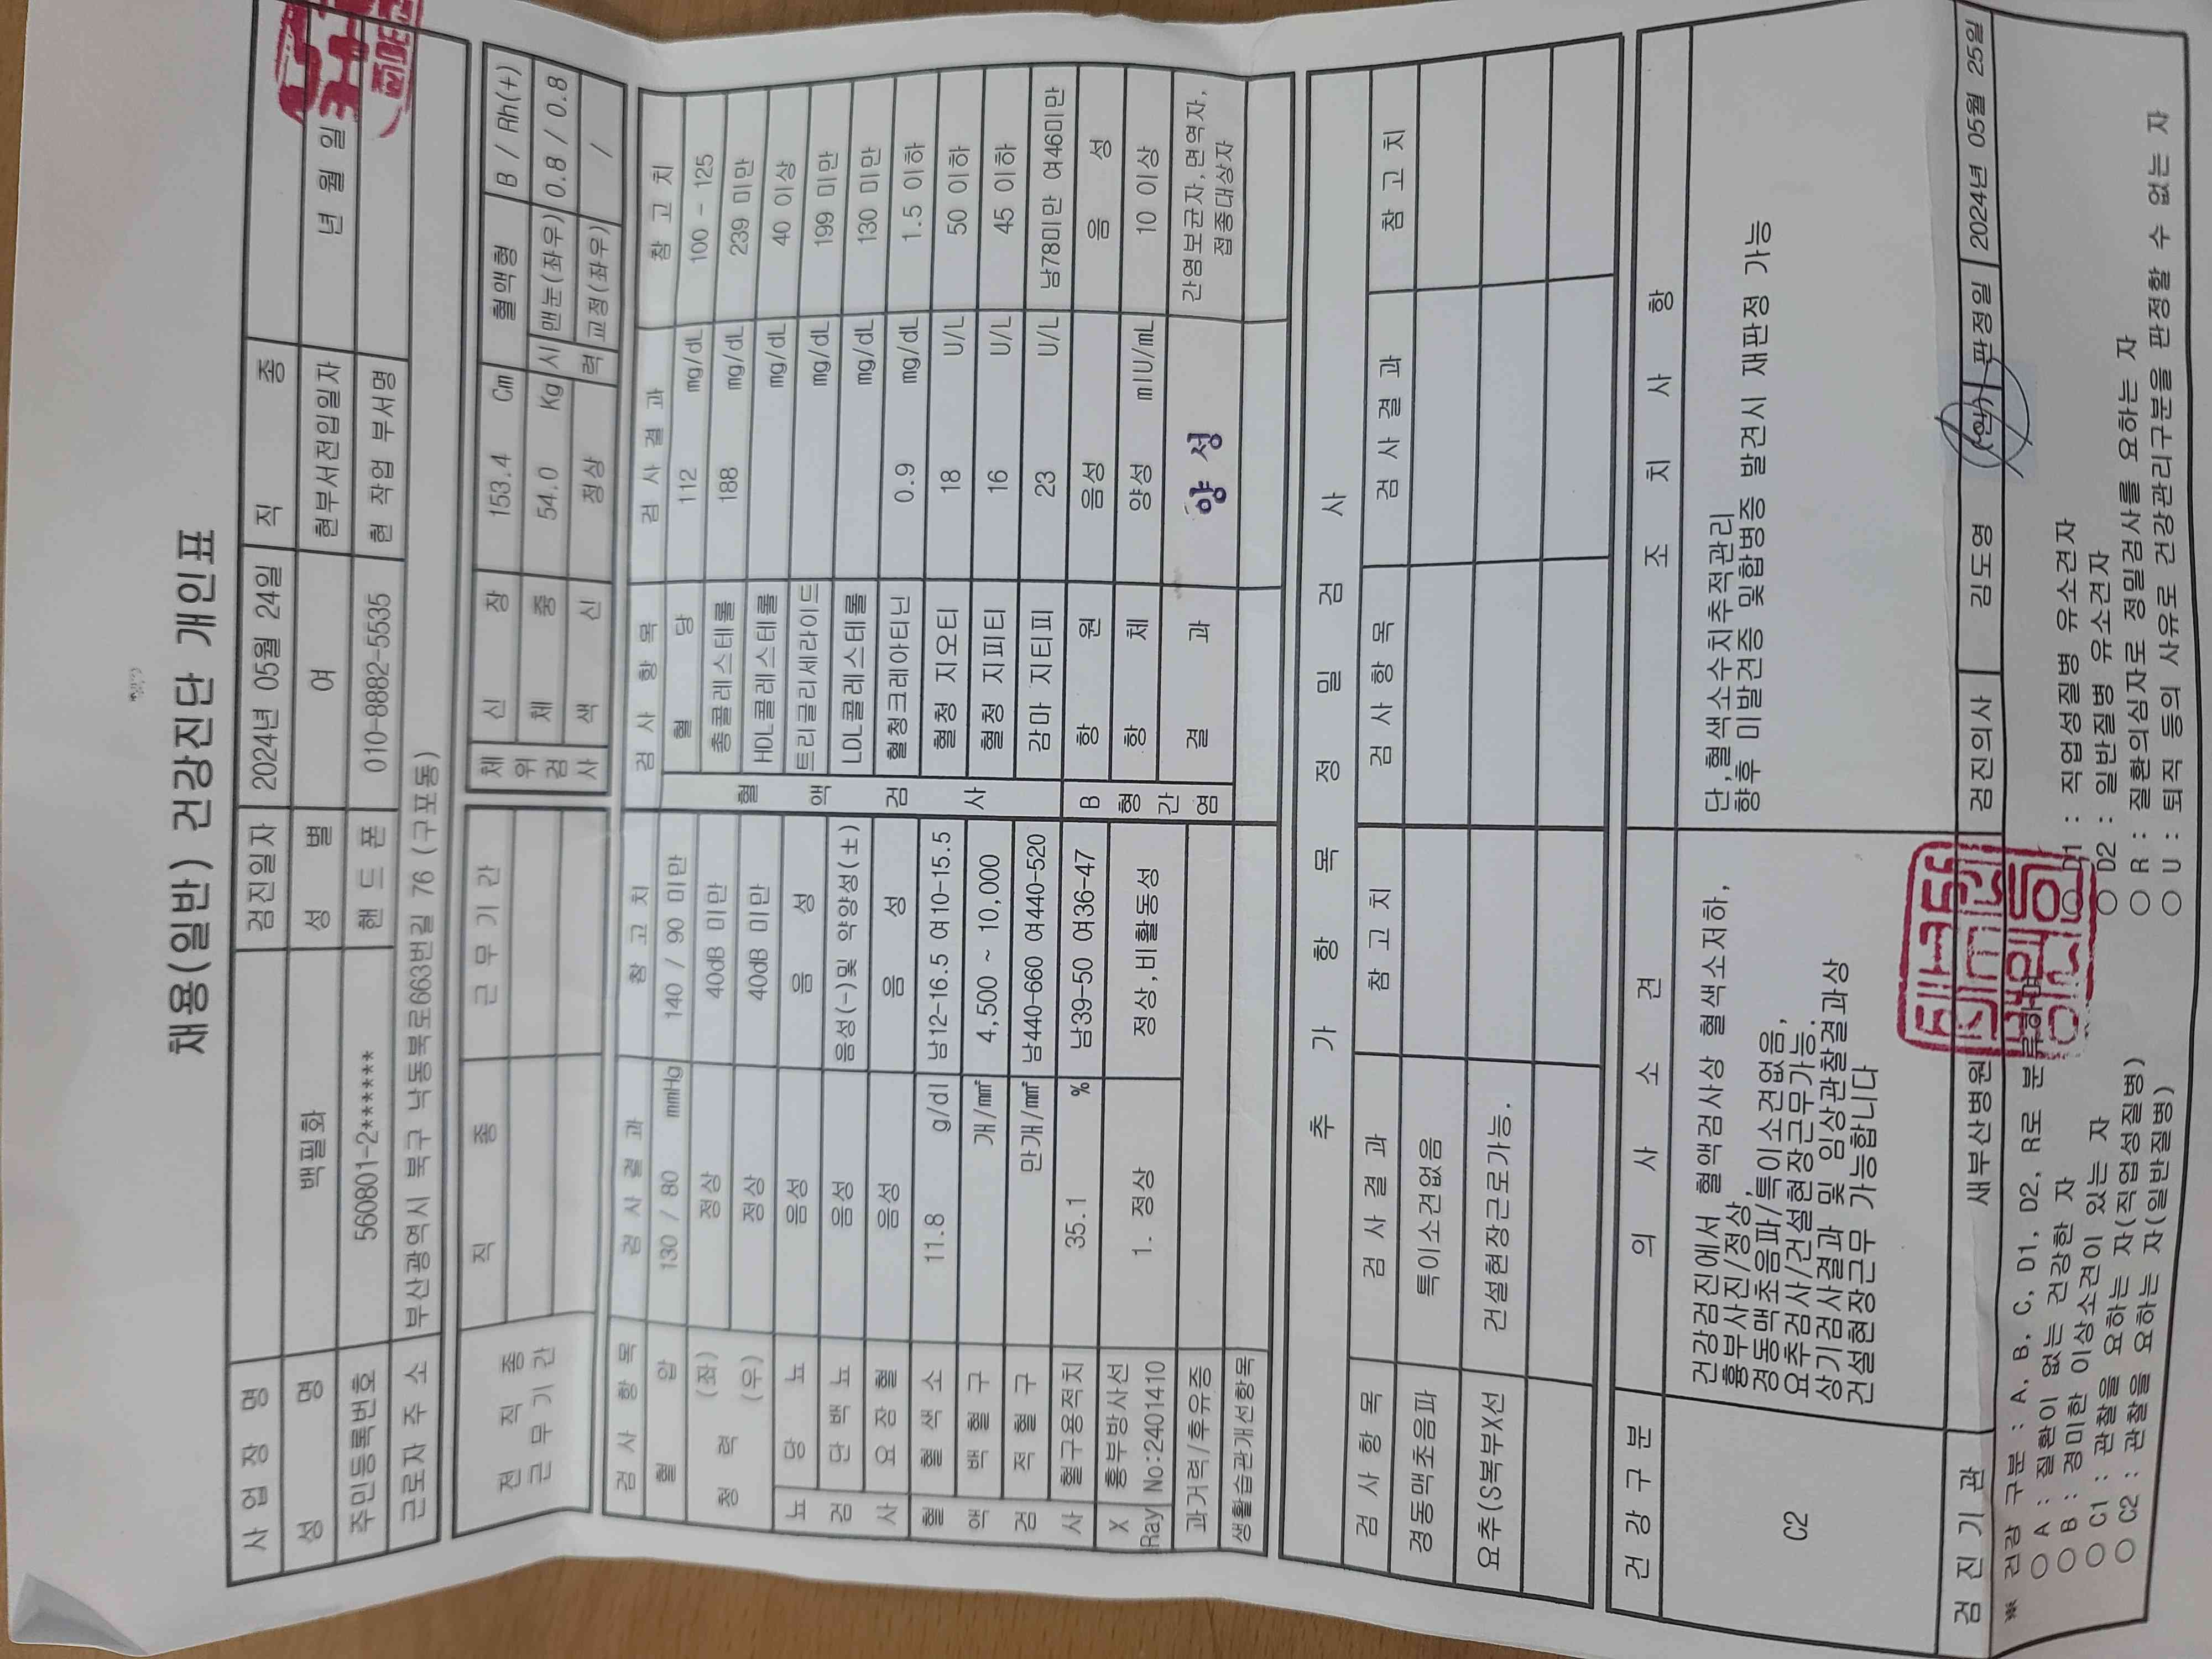 채용(일반) 건강진단 개인표
사 업 장 명 검진일자 2024년 05월 24일 직 종
성 명 백필화 성 별 여 현부서전입일자 년 월 일
주민등록번호 560801-2****** 핸 드 폰 010-8882-5535 현 작업 부서명
근로자 주 소 부산광역시 북구 낙동북로663번길 76 (구포동)
전 직 종 근 무 기 간 직 종 근 무 기 간
체 위 검 사
신 장 153.4 Cm 혈액형 B / Rh(+)
체 중 54.0 Kg 시 력 맨눈(좌우) 0.8 / 0.8
색 신 정상 교정(좌우) /
검 사 항 목 검 사 결 과 참 고 치
혈 압 130 / 80 mmHg 140 / 90 미만
청 력 (좌) 정상 40dB 미만
(우) 정상 40dB 미만
뇨 검 사
당 뇨 음성 음 성
단 백 뇨 음성 음성(-)및 약양성(±)
요 잠 혈 음성 음 성
혈 액 검 사
혈 색 소 11.8 g/dl 남12-16.5 여10-15.5
백 혈 구 개/㎣ 4,500 ~ 10,000
적 혈 구 만개/㎣ 남440-660 여440-520
혈구용적치 35.1 % 남39-50 여36-47
X Ray 흉부방사선 No:2401410 1. 정상 정상,비활동성
과거력/후유증
생활습관개선항목
검 사 항 목 검 사 결 과 참 고 치
혈 액 검 사
혈 당 112 mg/dL 100 - 125
총콜레스테롤 188 mg/dL 239 미만
HDL콜레스테롤 mg/dL 40 이상
트리글리세라이드 mg/dL 199 미만
LDL콜레스테롤 mg/dL 130 미만
혈청크레아티닌 0.9 mg/dL 1.5 이하
혈청 지오티 18 U/L 50 이하
혈청 지피티 16 U/L 45 이하
감마 지티피 23 U/L 남78미만 여46미만
B 형 간 염
항 원 음성 음 성
항 체 양성 mIU/mL 10 이상
결 과 양성 간염보균자,면역자,
접종대상자
추 가 항 목 정 밀 검 사
검 사 항 목 검 사 결 과 참 고 치 검 사 항 목 검 사 결 과 참 고 치
경동맥초음파 특이소견없음
요추(S복부X선 건설현장근로가능.
건 강 구 분 의 사 소 견 조 치 사 항
C2
건강검진에서 혈액검사상 혈색소저하,
흉부사진/정상,
경동맥초음파/특이소견없음,
요추검사/건설현장근무가능.
상기검사결과 및 임상관찰결과상
건설현장근무 가능합니다
단,혈색소수치추적관리
향후 미발견증 및합병증 발견시 재판정 가능
검 진 기 관 새부산병원 검진의사 김도영 (인) 판정일 2024년 05월 25일
※ 건강 구분 : A, B, C, D1, D2, R로 분
○ A : 질환이 없는 건강한 자
○ B : 경미한 이상소견이 있는 자
○ C1 : 관찰을 요하는 자(직업성질병)
○ C2 : 관찰을 요하는 자(일반질병)
○ D1 : 직업성질병 유소견자
○ D2 : 일반질병 유소견자
○ R : 질환의심자로 정밀검사를 요하는 자
○ U : 퇴직 등의 사유로 건강관리구분을 판정할 수 없는 자